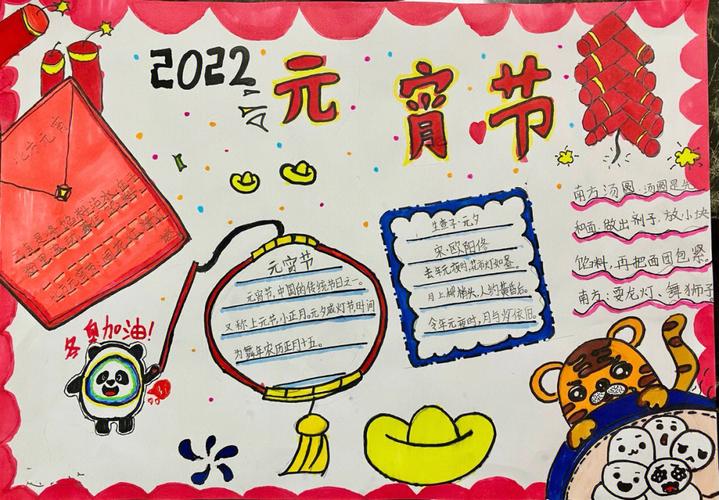 2022 元宵节
元宵节
元宵节,中国的传统节日之一。
又称上元节,小正月。元夕或灯节时间
为每年农历正月十五。
生查子·元夕
宋·欧阳修
去年元夜时,花市灯如昼。
月上柳梢头,人约黄昏后。
今年元夜时,月与灯依旧。
南方汤圆.汤圆是先
和面.做出剂子.放小块
馅料,再把面团包紧.
南方:耍龙灯、舞狮子
冬奥加油!